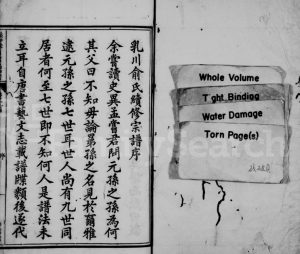 乳川俞氏續修宗譜序
余嘗讀史異孟嘗君問元孫之孫為何
其父曰不知毋論第孫之名見於爾雅
逮元孫之孫七世耳世人尚有九世同
居者何至七世即不知何人是譜法未
立耳自唐書藝文志載譜牒類後遂代
Whole Volume
Tight Binding
Water Damage
Torn Page(s)